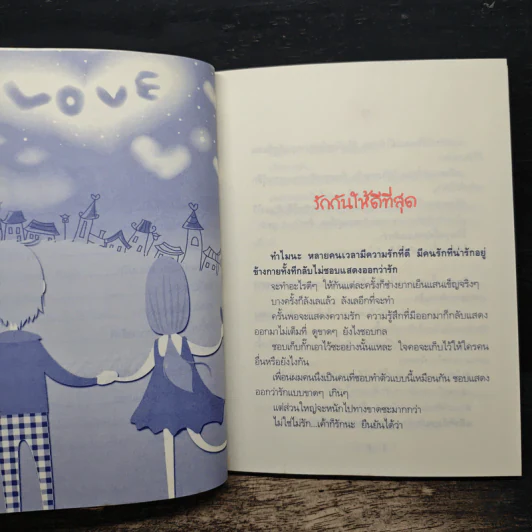 LOVE
รักกันให้ดีที่สุด
ทำไมนะ หลายคนเวลามีความรักที่ดี มีคนรักที่น่ารักอยู่
ข้างกายทั้งทีกลับไม่ชอบแสดงออกว่ารัก
จะทำอะไรดีๆ ให้กันแต่ละครั้งก็ช่างยากเย็นแสนเข็ญจริงๆ
บางครั้งก็ลังเลแล้ว ลังเลอีกที่จะทำ
ครั้นพอจะแสดงความรัก ความรู้สึกที่มีออกมาก็กลับแสดง
ออกมาไม่เต็มที่ ดูขาดๆ ยังไงชอบกล
ชอบเก็บกั๊กเอาไว้ซะอย่างนั้นแหละ ใจคอจะเก็บไว้ให้ใครคน
อื่นหรือยังไงกัน
เพื่อนผมคนนึงเป็นคนที่ชอบทำตัวแบบนี้เหมือนกัน ชอบแสดง
ออกว่ารักแบบขาดๆ เกินๆ
แต่ส่วนใหญ่จะหนักไปทางขาดซะมากกว่า
ไม่ใช่ไม่รัก...เค้าก็รักนะ ยืนยันได้ว่า